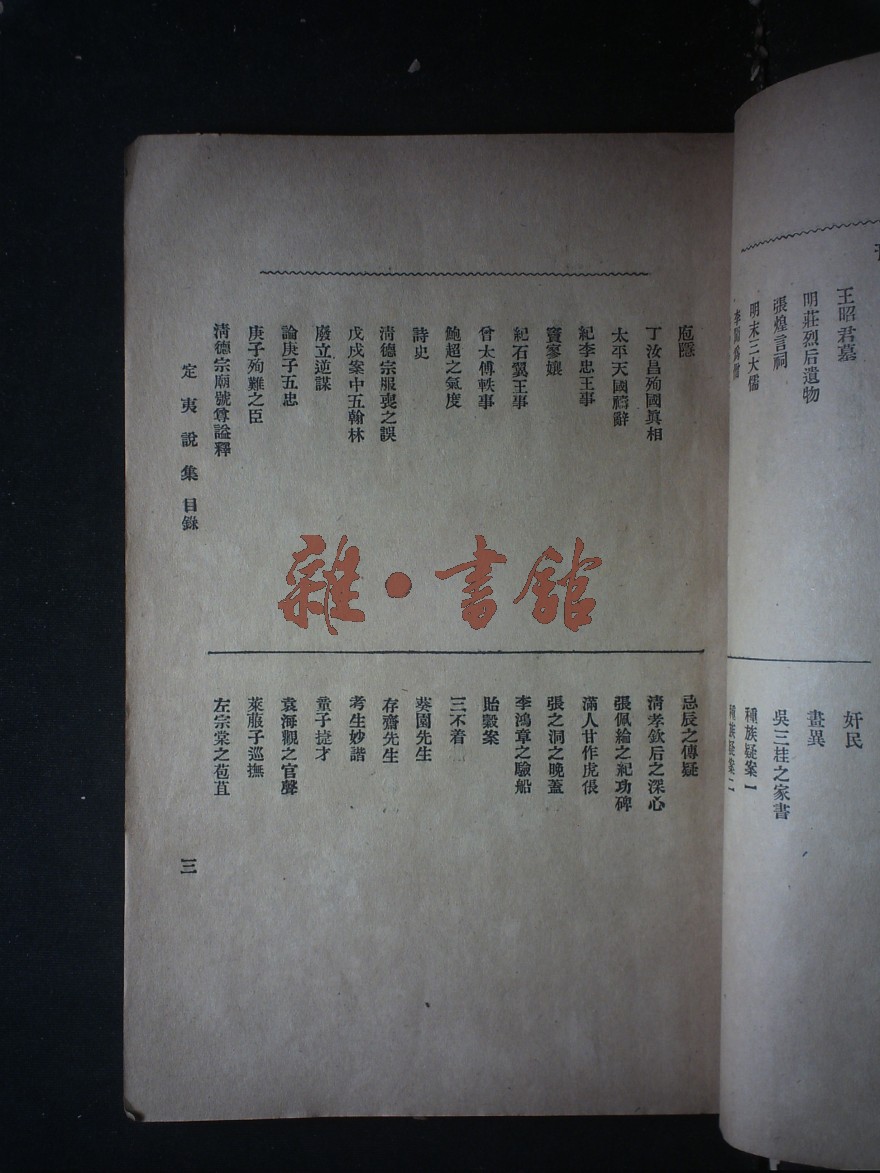 王昭君墓
明莊烈后遺物
張煌言祠
明末三大儒
奸民
畫異
吳三桂之家書
種族疑案一
種族疑案二
庖隱
丁汝昌殉國眞相
太平天國禱辭
紀李忠王事
竇寥孃
紀石翼王事
曾太傅軼事
鮑超之氣度
詩史
淸德宗服喪之誤
戊戌案中五翰林
廢立逆謀
論庚子五忠
庚子殉難之臣
淸德宗廟號尊謚釋
忌辰之傳疑
淸孝欽后之深心
張佩綸之紀功碑
滿人甘作虎倀
張之洞之晚蓋
李鴻章之驗船
貽穀案
三不着
葵園先生
存齋先生
考生妙諧
童子捷才
袁海觀之官聲
萊菔子巡撫
左宗棠之苞苴
定夷說集 目錄
三
雜·書館